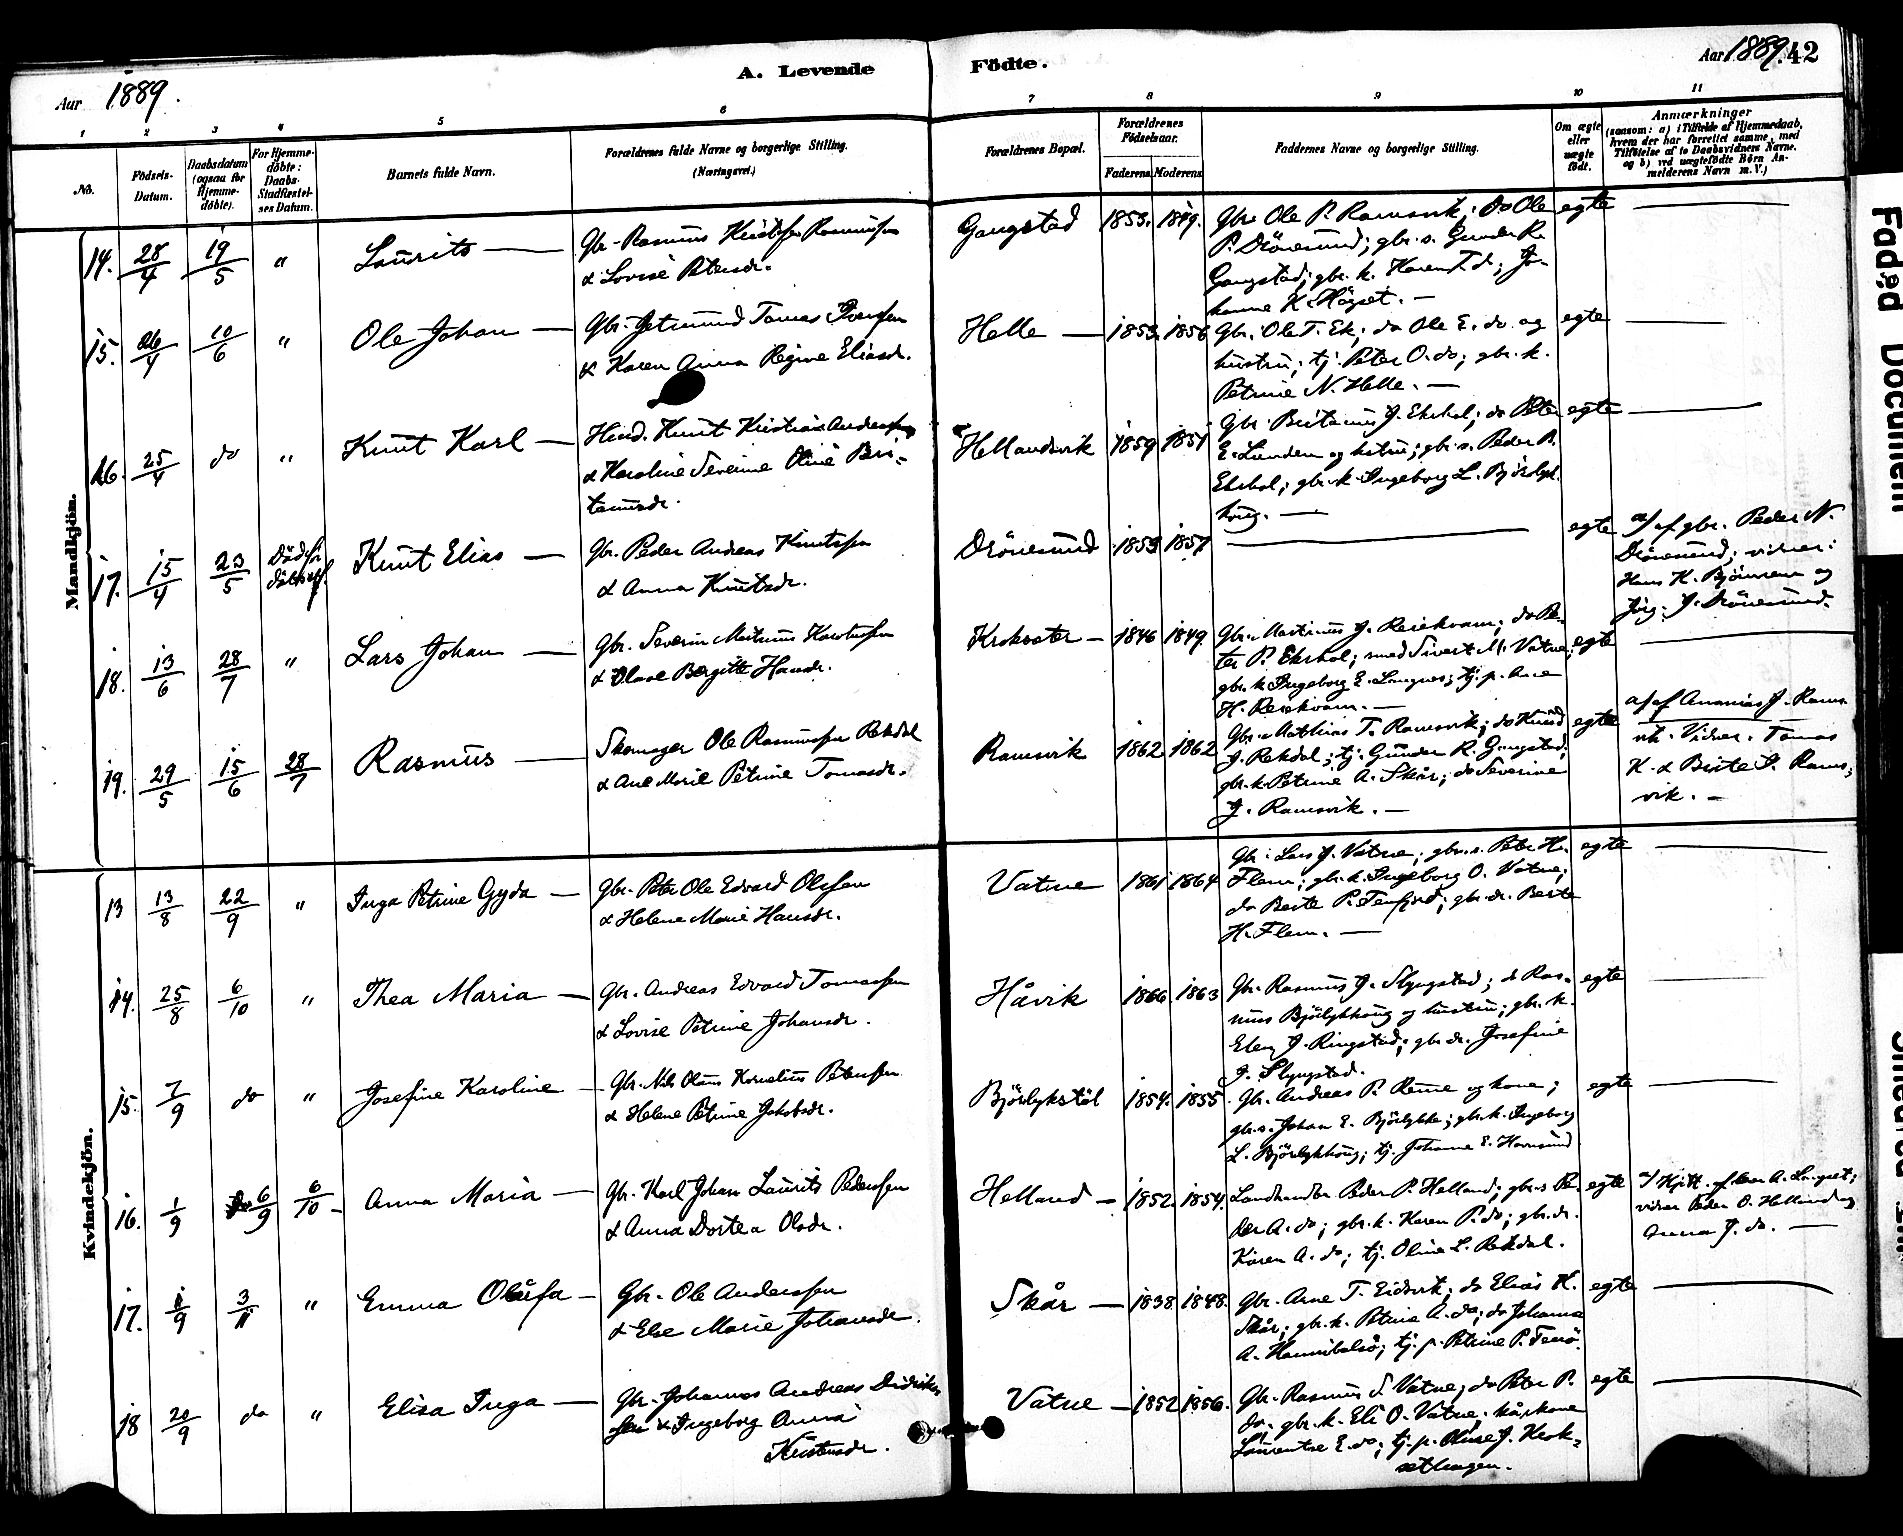 Aar 1889.
A. Levende
Födte.
Aar 1889. 42
1 2 3 4 5 6 7 8 9 10 11
No.
Födsels-Datum.
Daabsdatum (ogsaa for Hjemme-döbte).
For Hjemme-döbte: Daabs-Stadfæstel-ses Datum.
Barnets fulde Navn.
Forældrenes fulde Navne og borgerlige Stilling. (Næringsvei.)
Forældrenes Bopæl.
Forældrenes Födselsaar.
Faderens Moderens
Faddernes Navne og borgerlige Stilling.
Om ægte eller uægte födt.
Anmærkninger
(saasom: a) i Tilfælde af Hjemmedaab,
hvem der har forrettet samme, med
Tilföielse af to Daabsvidners Navne.
og b) ved uægtefödte Börn An-
melderens Navn m.V.)
Mandkjön.
14. 28/4 19/5 " Laurits —
Gbr. Rasmus Kristofer Rasmussen
& Lovise Petersdr.
Gangstad 1853. 1849.
Gbr. Ole P. Ramsvik; do Ole
P. Drönesund; gbr. s. Gunder R.
Gangstad; gbr. k. Karen T. do; Jo-
hanne K. Högset. —
egte —
15. 26/4 10/6 " Ole Johan —
Gbr. Jetmund Tomas Iversen
& Karen Anna Regine Eliasdr.
Helle — 1853. 1856
Gbr. Ole T. Ek; do Ole E. do og
hustru; tj. Peter O. do; gbr. k.
Petrine N. Helle. —
egte —
16. 25/4 do " Knut Karl —
Hmd. Knut Kristian Andersen
& Karoline Severine Oline Ber-
tinusdr.
Hellandsvik 1859 1851
Gbr. Bertinus J. Ekrhol; do Peter
E. Lunden og hstru; gbr. s. Peder P.
Ekrhol; gbr. k. Ingeborg L. Björlyk-
haug. —
egte —
17. 15/4 23/5 Död för
Knut Elias —
Gbr. Peder Andreas Knutssen
& Anna Knutsdr.
Drönesund 1853 1857
—
egte
a/ af gbr. Peder N.
Drönesund; vidner:
Hans K. Björnsem og
Jörg. J. Drönesund.
18. 13/6 28/7 " Lars Johan —
Gbr. Severin Martinus
& Olave Bergitte Hansdr.
Kroksæter — 1846 1849.
Gbr. Martinus J. Reiekvam; do Pe-
ter P. Ekrhol; smed Sivert M. Vatne;
gbr. k. Ingeborg E. Langnes; tj. p. Ane
H. Reiekvam. —
egte —
19. 29/5 15/6 28/7 Rasmus —
Skomager Ole Rasmussen Rekdal
& Ane Marie Petrine Tomasdr.
Ramsvik 1862 1862
Gbr. Mathias T. Ramsvik; do Knud
J. Rekdal; tj. Gunder R. Gangstad;
gbr. k. Petrine A. Skår; do Severine
J. Ramsvik. —
egte
a/ af Ananias J. Rams-
vik. Vidner: Tomas
K. & Berte J. Rams-
vik. —
Kvindekjön.
13 13/8 22/9 " Inga Petrine Gyda —
Gbr. Peter Ole Edvard Olsen
& Helene Marie Hansdr.
Vatne 1861 1864
Gbr. Lars J. Vatne; gbr. s. Peter H.
Flem; gbr. k. Ingeborg O. Vatne;
do Berte P. Tenfjord; gbr. dr. Berte
H. Flem. —
egte —
14. 25/8 6/10 " Thea Maria —
Gbr. Andreas Edvard Tomassen
& Lovise Petrine Johansdr.
Håvik 1866. 1863
Gbr. Rasmus J. Slyngstad; do Ras-
mus Björlykhaug og hustru; gbr. k.
Elen J. Ringstad; gbr. dr. Josefine
J. Slyngstad.
egte —
15. 7/9 do " Josefine Karoline —
Gbr. Nils Olaus Kornelius Petersen
& Helene Petrine Jakobsdr.
Björlykstöl 1854. 1855
Gbr. Andreas P. Reme og kone;
gbr. s. Johan E. Björlykke; gbr. k. Ingeborg
L. Björlykhaug; tj. Johanne E. Hamnsund
egte —
16. 1/9 6/9 6/10 Anna Maria —
Gbr. Karl Johan Laurits Pedersen
& Anna Dortea Olsdr.
Helland — 1852. 1854.
Landhandler Peder P. Helland; gbr. s. Pe-
der A. do; gbr. k. Karen P. do; gbr. dr.
Karen A. do; tj. Oline L. Rekdal.
egte
vidner Peder O. Helland og
Anna J. do. —
17. 8/9 3/11 " Emma Olufa —
Gbr. Ole Anderssen
& Else Marie Johansdr.
Skår — 1838. 1848.
Gbr. Arne T. Eidsvik; do Elias K.
Skår; gbr. k. Petrine A. do; do Johanna
A. Hannibalsö; tj. p. Petrine P. Tenö
egte —
18 20/9 do " Elisa Inga —
Gbr. Johannes Andreas Didrik-
sen & Ingeborg Anna
Kristensdr.
Vatne — 1852 1856.
Gbr. Rasmus S. Vatne; do Peter P.
do; gbr. k. Eli O. Vatne; kårkone
Laurentse E. do; tj. p. Oluse J. Krok-
sethagen.
egte —
Faded Document